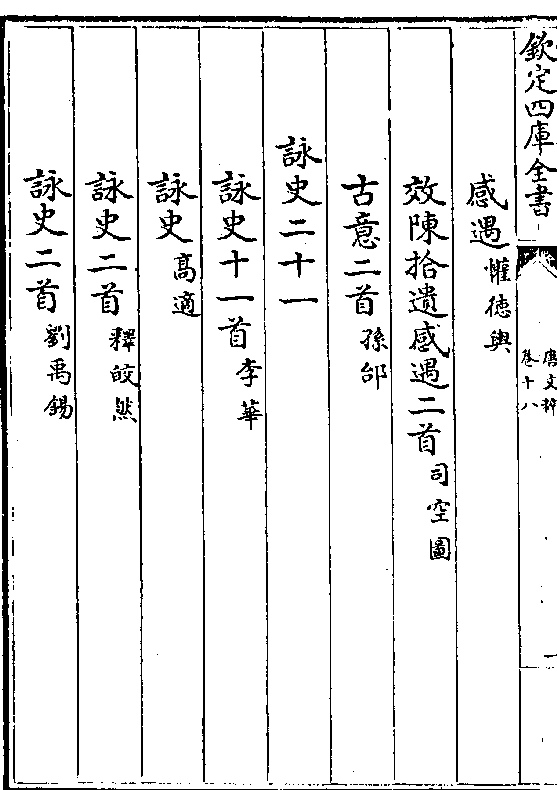 欽定四庫全書
唐文粹
卷十八
感遇 權德輿
效陳拾遺感遇二首 司空圖
古意二首 孫郃
詠史二十一
詠史十一首 李華
詠史 高適
詠史二首 釋皎然
詠史二首 劉禹錫